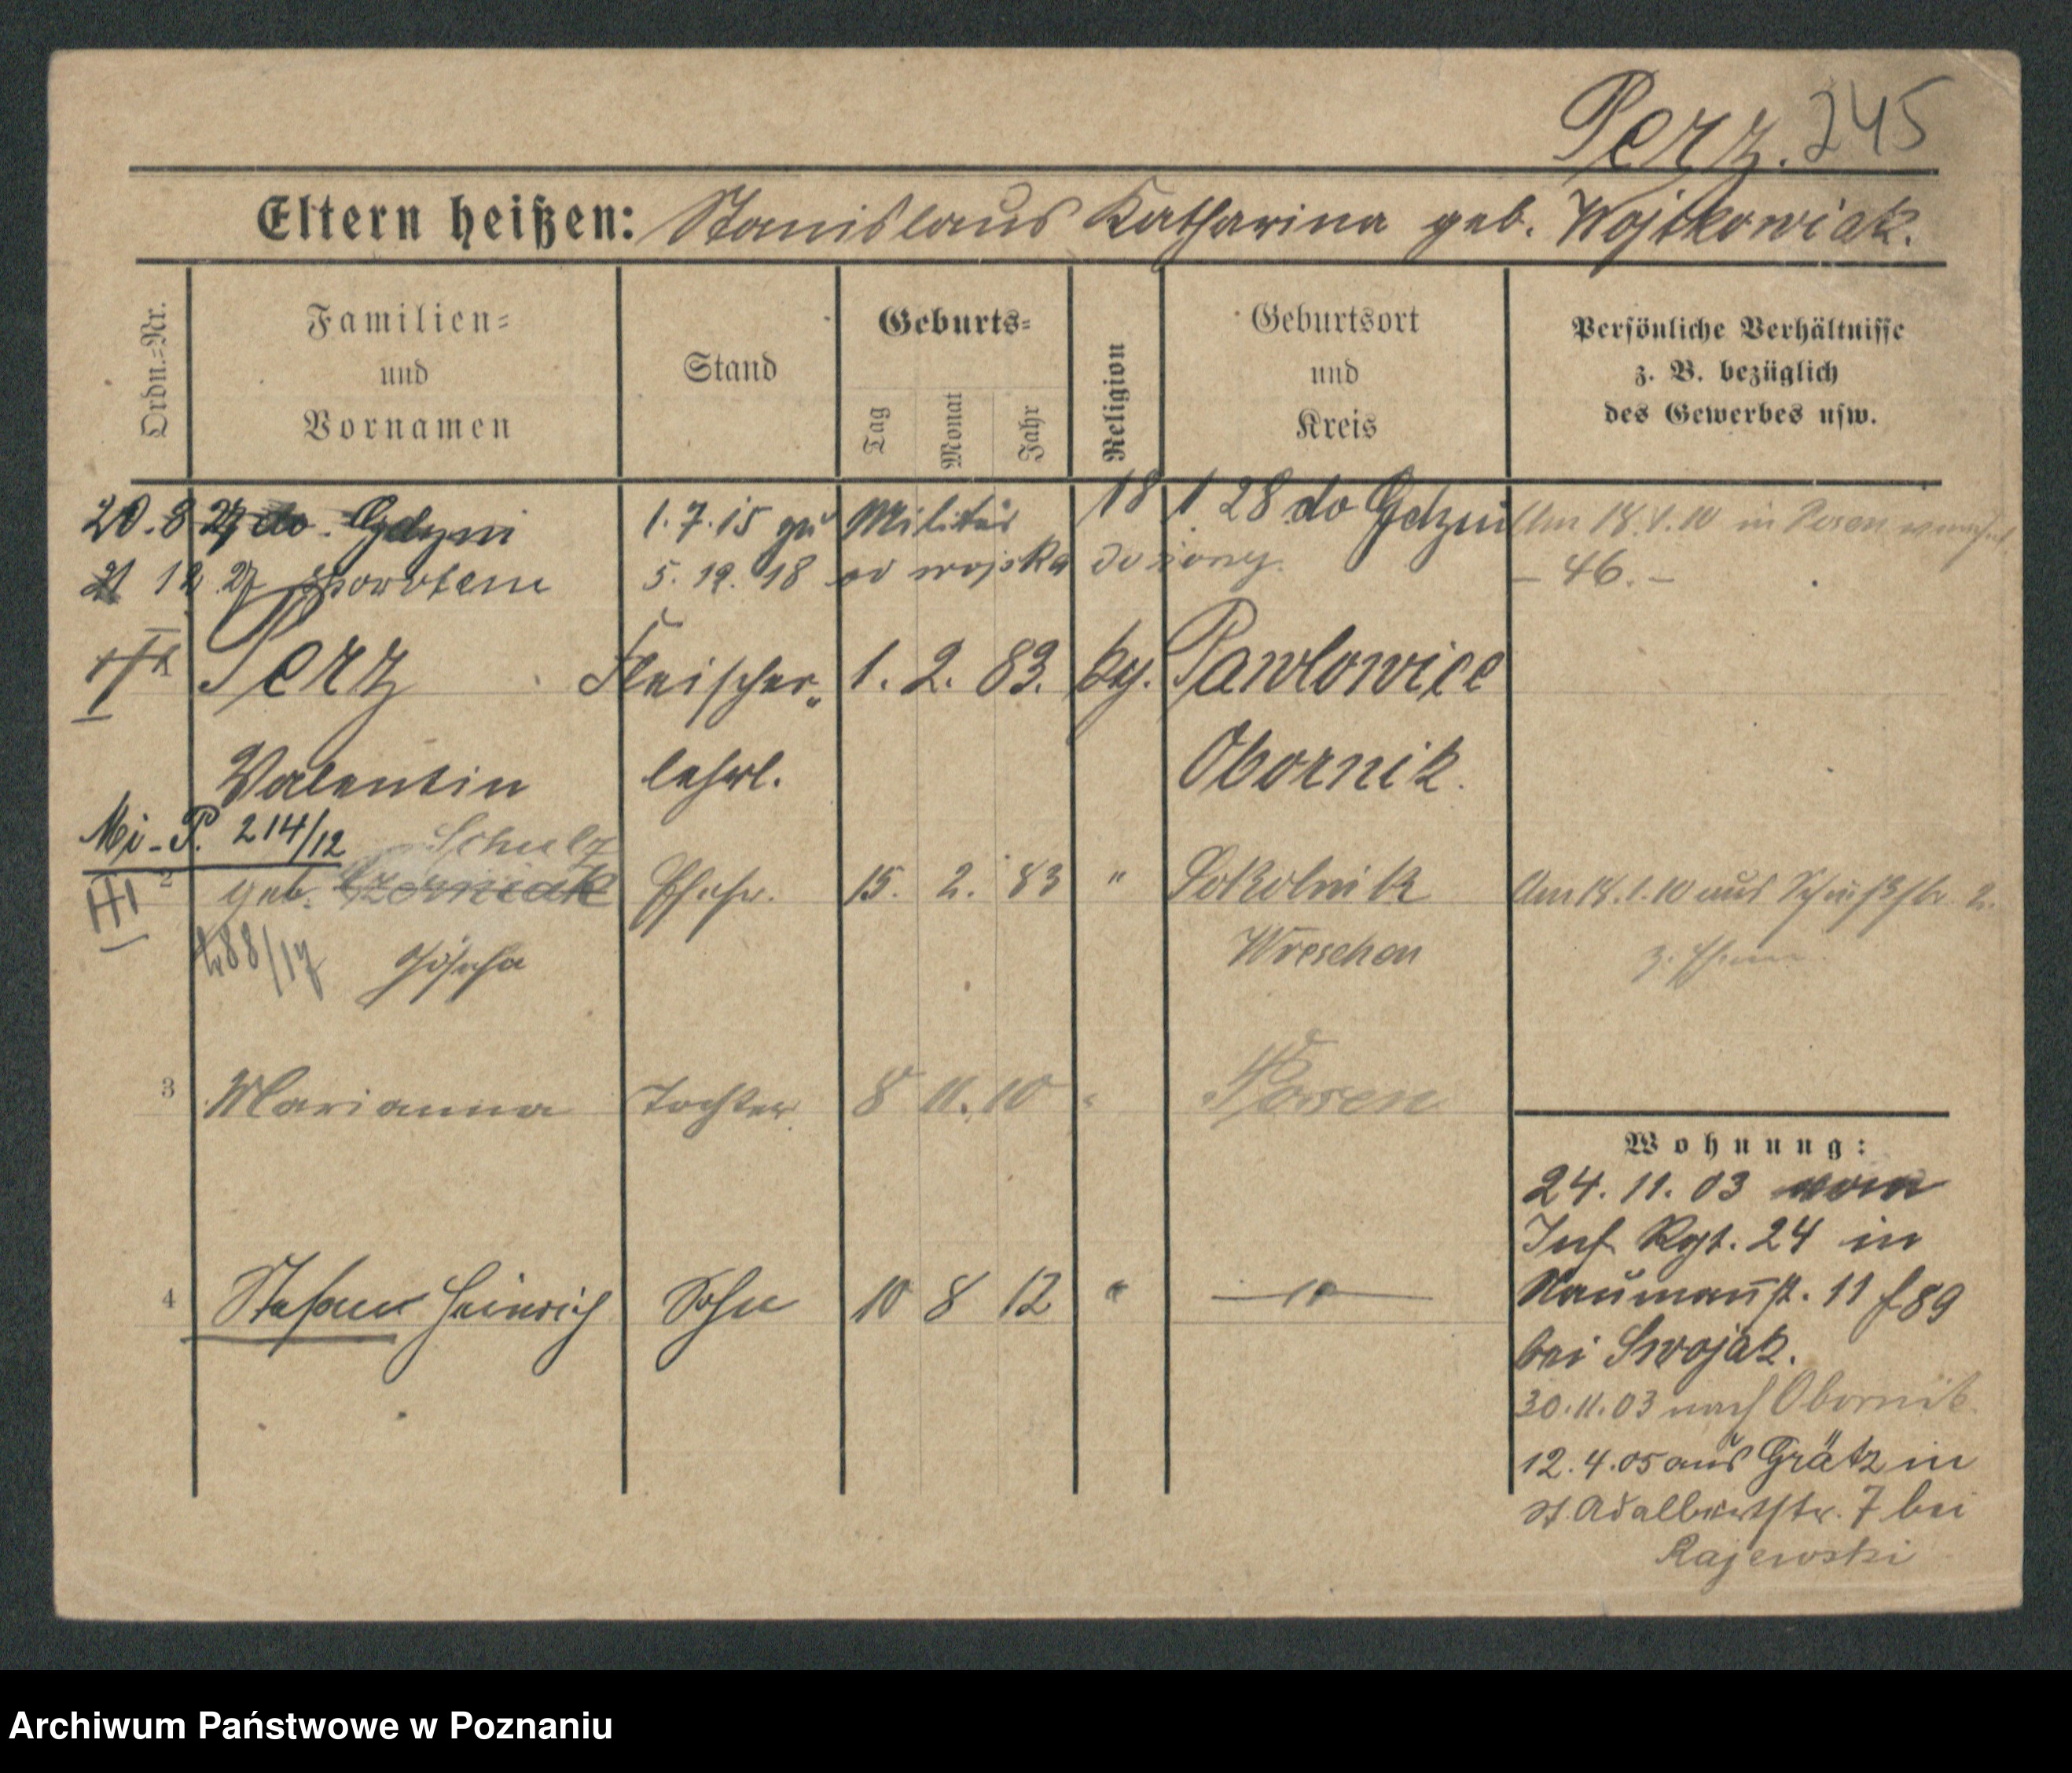 Perz. 245
Eltern heißen: Stanislaus Katharina geb. Wojtkowiak.
Ordn.=Nr.
Familien= und Vornamen
Stand
Geburts=
Tag
Monat
Jahr
Religion
Geburtsort und Kreis
Persönliche Verhältnisse
z. B. bezüglich
des Gewerbes usw.
20.8 27 do Gdyni
1.7.15 zu Militär
18 1 28 do Gdyni
Am 18.1.10 in Posen
21 12 27 spowrotem
5. 12. 18 od wojska do żony.
- 46. -
Perz Fleischer„ 1. 2. 83. kg. Pawlowice
Valentin lehrl. Obornik.
Mi-P. 214/12
Schulz
2 geb. Czerniak Ehefr. 15. 2. 83 " Sokolnik
Am 18.1.10 aus
III
488/17 Josefa Wreschen
3 Marianna Tochter 8 11. 10 " Posen
Wohnung:
24. 11. 03 vom
Inf. Rgt. 24 in
Naumannst. 11 f 89
bei Swojak.
4 Stefan Heinrich Sohn 10 8 12 " — " —
30.11.03 nach Obornik
12.4.05 aus Grätz in
St. Adalbertstr. 7 bei
Rajewski
Archiwum Państwowe w Poznaniu